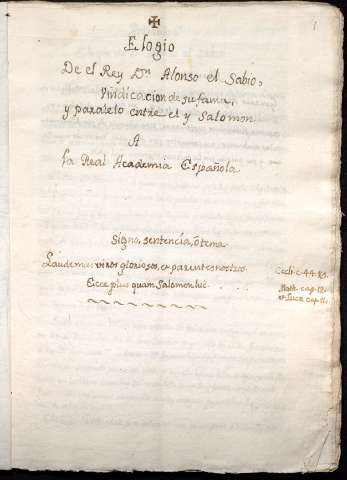 1
Elogio
De el Rey Dn Alonso el Sabio,
Vindicacion de su fama,
y paralelo entre el y Salomon
A
La Real Academia Española
Signo, sentencia, ò tema
Laudemus viros gloriosos, et parentes nostros
Eccli. c. 44.
Ecce plus quam Salomon hic.
Math. cap. 12.
et Lucæ cap. 11.